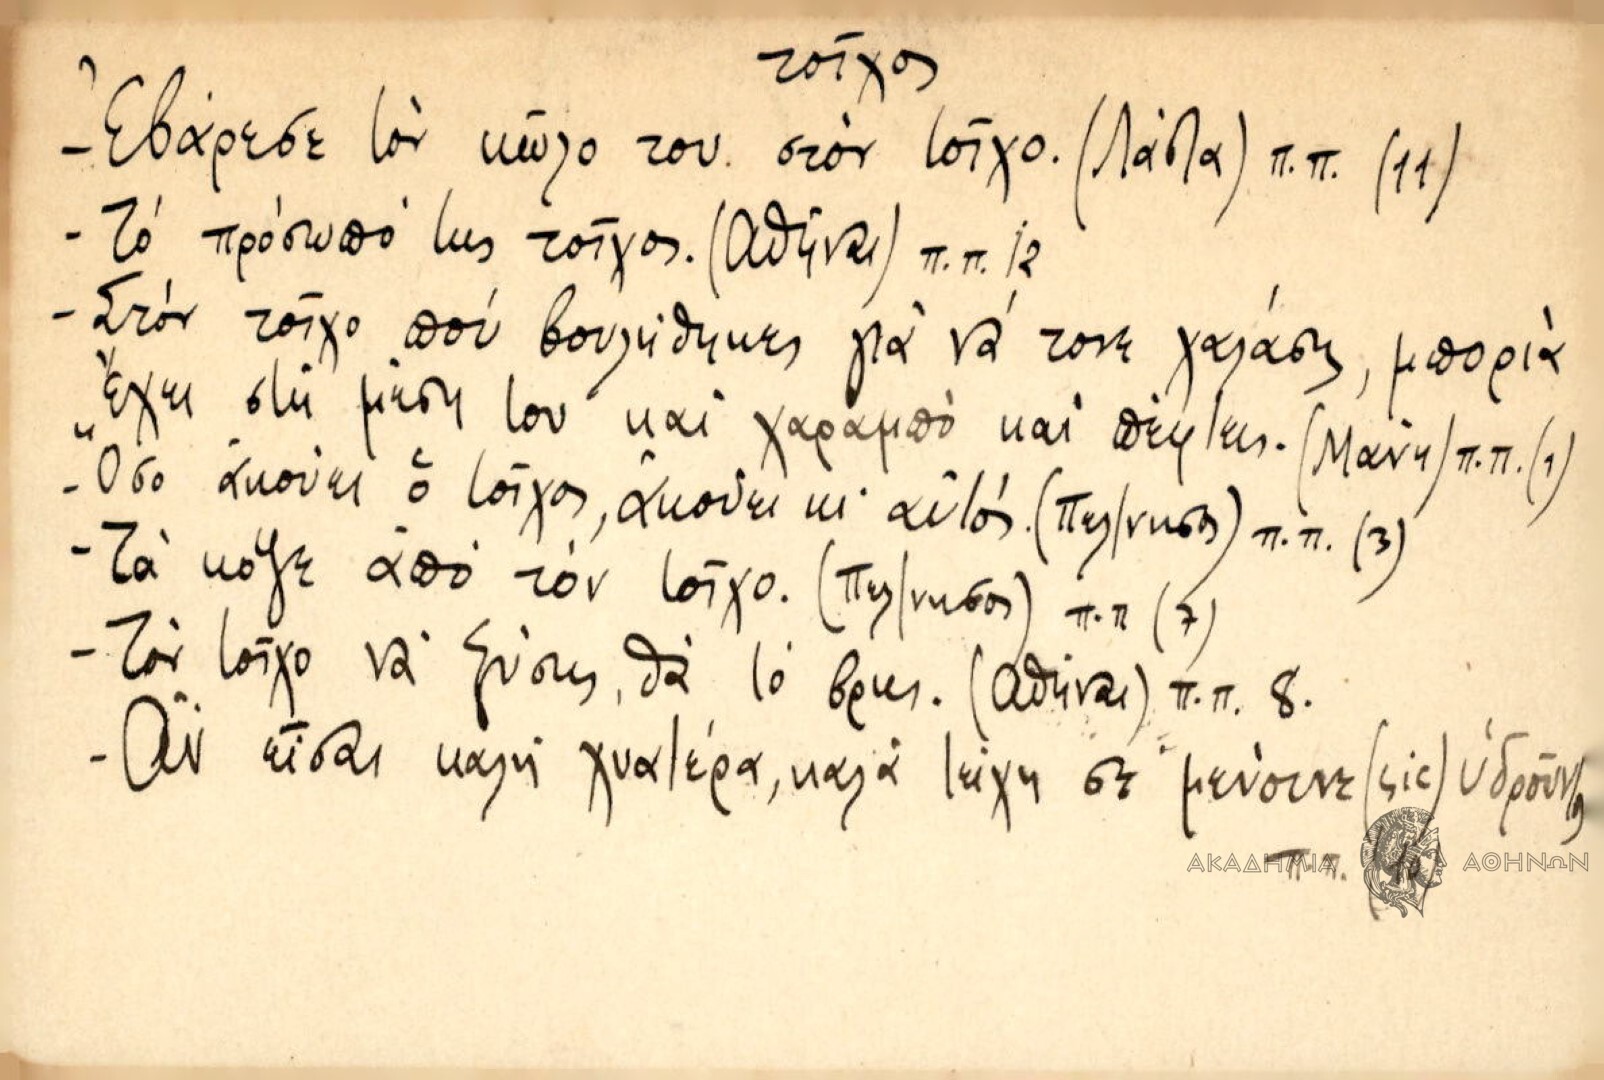 τοῖχος
- Ἐβάρεσε τὸν κῶλο του στὸν τοῖχο. (Λάστα) π.π. (11)
- Τό πρόσωπό της τοῖχος. (Ἀθῆναι) π.π. 12
- Στόν τοῖχο πού βουλήθηκες γιὰ νά τονε χαλάσης, μποριὰ
ἔχει στὴ μέση του καὶ χαραμπὸ καὶ πέφτεις. (Μάνη) π.π. (1)
- Ὅσο ἀκούει ὁ τοῖχος, ἀκούει κι' αὐτός. (Πελ/νησος) π.π. (3)
- Τὰ κόβγε ἀπὸ τόν τοῖχο. (Πελ/νησος) π.π (7)
- Τὸν τοῖχο νὰ ξύσης, θὰ τὸ βρῃς. (Ἀθῆναι) π.π. 8.
- Ἂν εἶσαι καλὴ χυατέρα, καλὰ τείχη σὲ μένουνε (sic) Ὑδροῦν/ς
π.π. (10)
ΑΚΑΔΗΜΙΑ ΑΘΗΝΩΝ